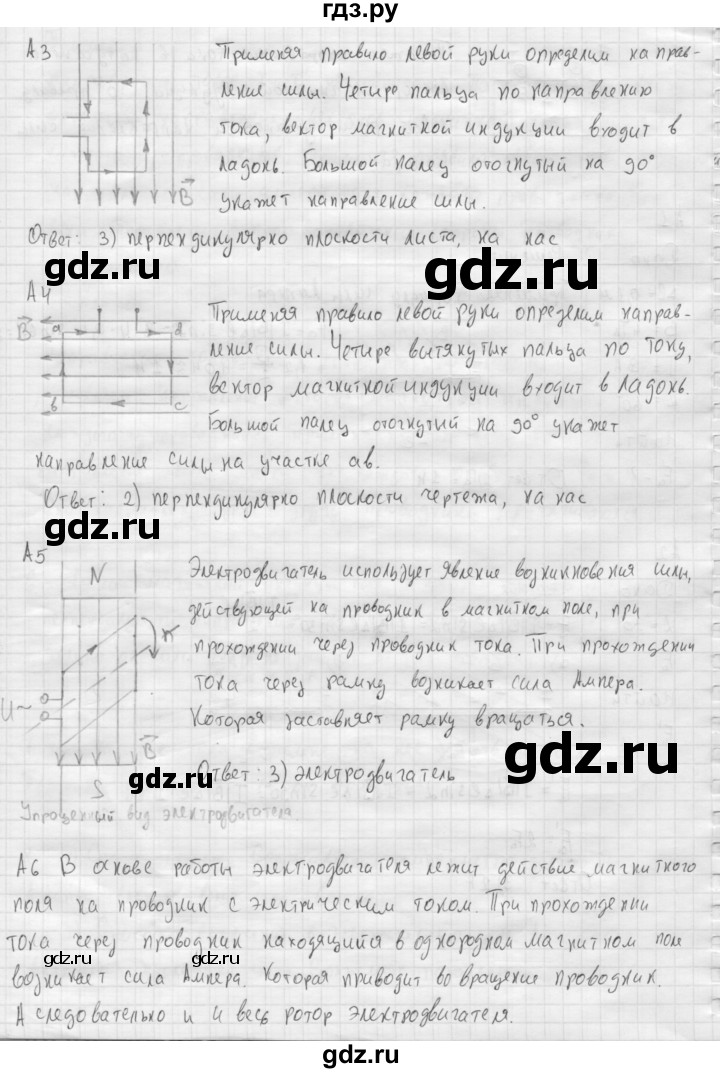 гдз.ру
А3
Применяя правило левой руки определим направ-
ление силы. Четыре пальца по направлению
тока, вектор магнитной индукции входит в
ладонь. Большой палец отогнутый на 90°
укажет направление силы.
B
Ответ: 3) перпендикулярно плоскости листа, на нас
gdz.ru gdz.ru
А4
B a d
b c
Применяя правило левой руки определим направ-
ление силы. Четыре вытянутых пальца по току,
вектор магнитной индукции входит в ладонь.
Большой палец отогнутый на 90° укажет
направление силы на участке ab.
Ответ: 2) перпендикулярно плоскости чертежа, на нас
gdz.ru
А5
N
n
U~
B
S
Электродвигатель использует явление возникновения силы,
действующей на проводник в магнитном поле, при
прохождении через проводник тока. При прохождении
тока через рамку возникает сила Ампера.
Которая заставляет рамку вращаться.
gdz.ru gdz.ru
Ответ: 3) электродвигатель
Упрощенный вид электродвигателя.
А6 В онове работы электродвигателя лежит действие магнитного
поля на проводник с электрическим током. При прохождении
тока через проводник находящийся в однородном магнитном поле
возникает сила Ампера. Которая приводит во вращение проводник.
А следовательно и и весь ротор электродвигателя.
gdz.ru gdz.ru
gdz.ru